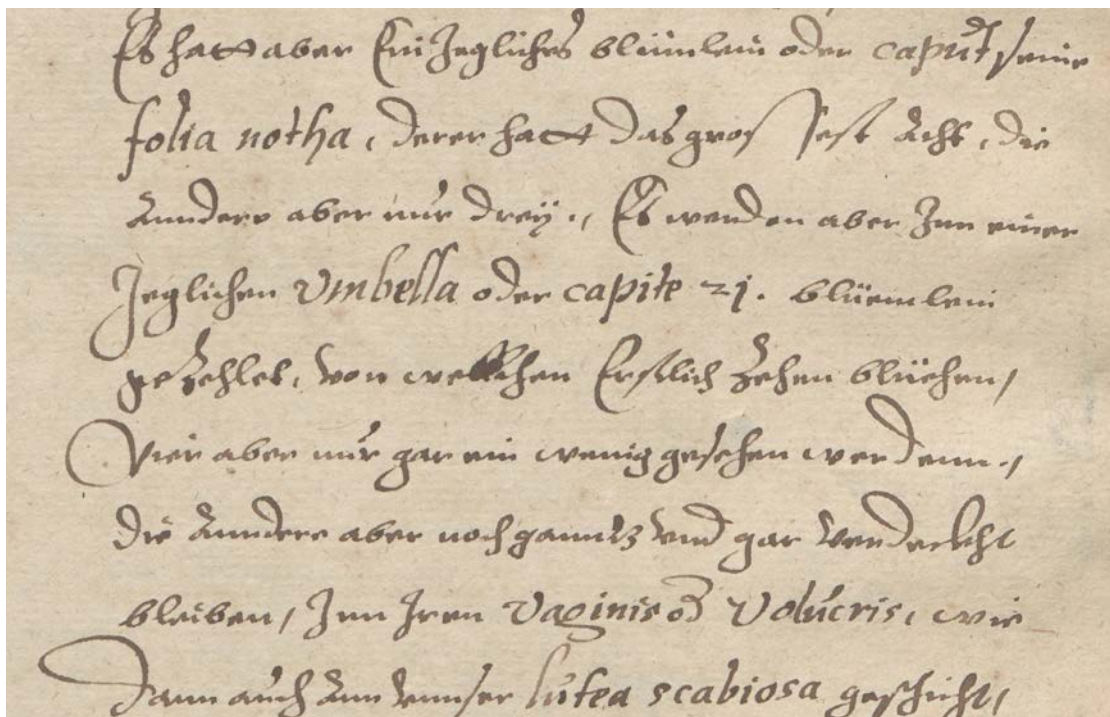 Es hatt aber Ein Jegliches blüimlein oder caput seine
folia notha, derer hatt das gros sest Acht, die
Anndere aber nur dreÿ., Es werden aber Inn einer
Jeglichen Vmbella oder capite 21. blüemlein
gezehlet, von welchen Erstlich Zehen blüehen,
Vier aber nur gar ein wenig gesehen werdenn.,
die Anndere aber noch ganntz vnd gar verdeckht
bleiben, Inn Iren Vaginis od Volucris, wie
dann auch Ann vnnser lutea scabiosa geschicht,